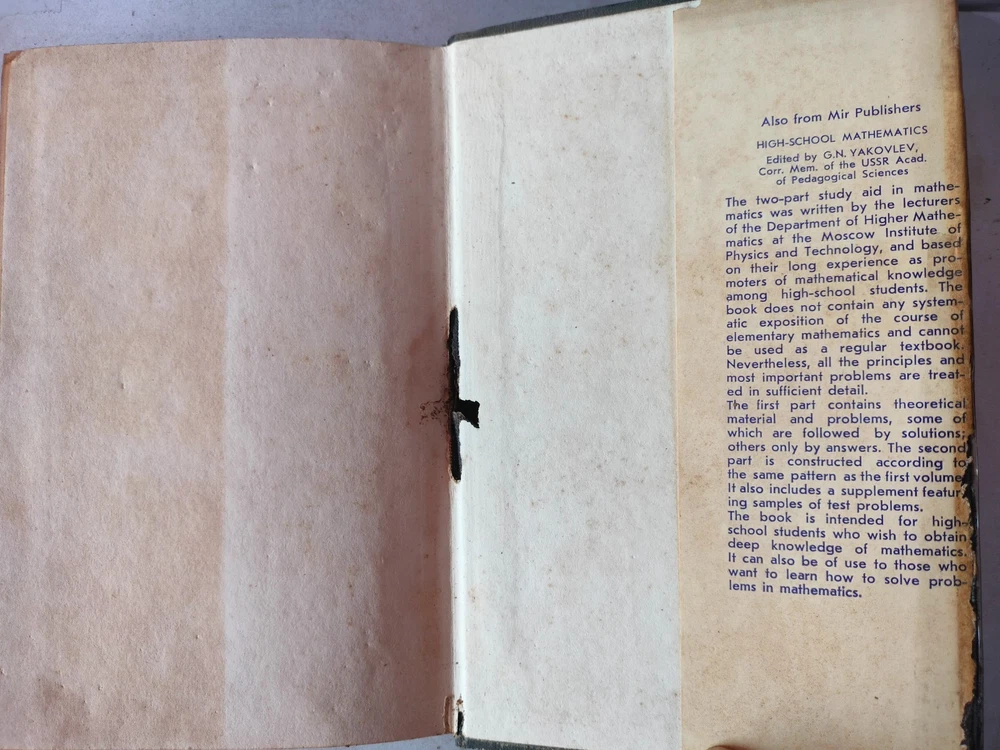 Also from Mir Publishers
HIGH-SCHOOL MATHEMATICS
Edited by G.N. YAKOVLEV,
Corr. Mem. of the USSR Acad.
of Pedagogical Sciences
The two-part study aid in mathe-
matics was written by the lecturers
of the Department of Higher Mathe-
matics at the Moscow Institute of
Physics and Technology, and based
on their long experience as pro-
moters of mathematical knowledge
among high-school students. The
book does not contain any system-
atic exposition of the course of
elementary mathematics and cannot
be used as a regular textbook.
Nevertheless, all the principles and
most important problems are treat-
ed in sufficient detail.
The first part contains theoretical
material and problems, some of
which are followed by solutions;
others only by answers. The second
part is constructed according to
the same pattern as the first volume
It also includes a supplement featur
ing samples of test problems.
The book is intended for high-
school students who wish to obtain
deep knowledge of mathematics.
It can also be of use to those who
want to learn how to solve prob-
lems in mathematics.